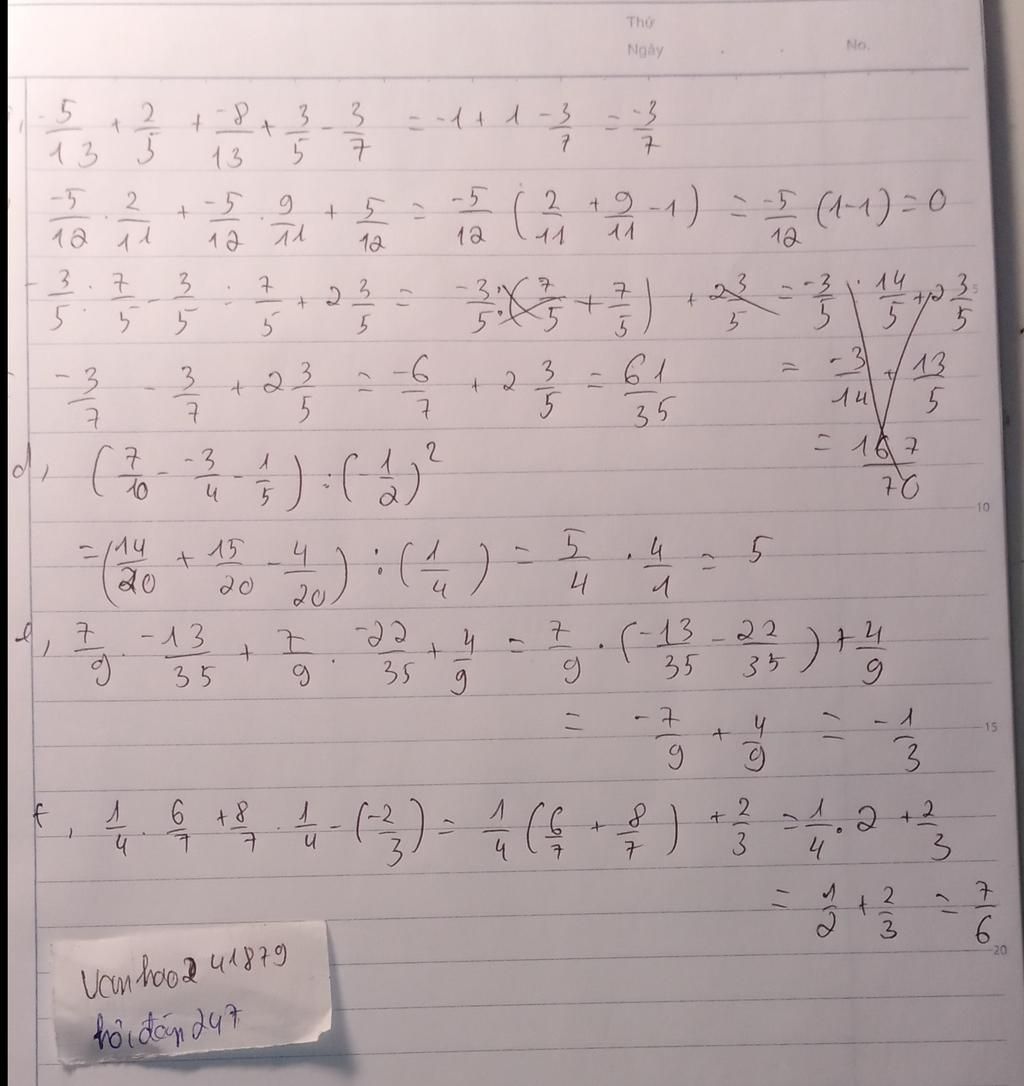 Thứ
Ngày . . No.
, -5/13 + 2/5 + -8/13 + 3/5 - 3/7 = -1 + 1 - 3/7 = -3/7
-5/12 . 2/11 + -5/12 . 9/11 + 5/12 = -5/12 (2/11 + 9/11 - 1) = -5/12 (1-1) = 0
-3/5 . 7/5 - 3/5 : 7/5 + 2 3/5 = -3/5 : (7/5 + 7/5) + 2 3/5 = -3/5 . 14/5 + 2 3/5
5
-3/7 - 3/7 + 2 3/5 = -6/7 + 2 3/5 = 61/35 = -3/14 + 13/5
d, (7/10 - -3/4 - 1/5) : (-1/2)^2 = 167/70
10
= (14/20 + 15/20 - 4/20) : (1/4) = 5/4 . 4/1 = 5
e, 7/9 . -13/35 + 7/9 . -22/35 + 4/9 = 7/9 . (-13/35 - 22/35) + 4/9
= -7/9 + 4/9 = -1/3
15
f, 1/4 . 6/7 + 8/7 . 1/4 - (-2/3) = 1/4 (6/7 + 8/7) + 2/3 = 1/4 . 2 + 2/3
= 1/2 + 2/3 = 7/6
20
Vanhao241879
hỏi đáp 247